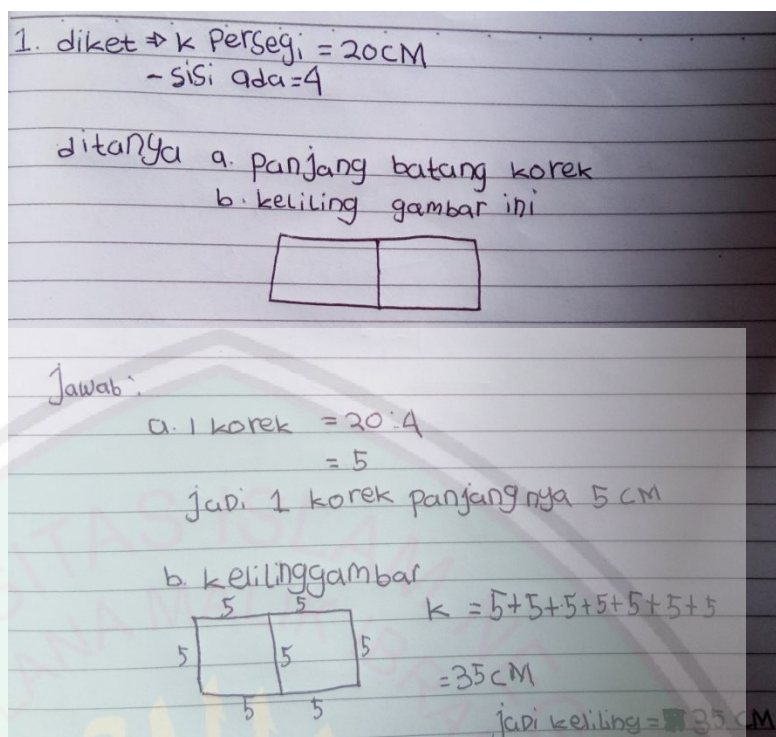 1. diket ⇒ k Persegi = 20 CM
- sisi ada = 4
ditanya a. panjang batang korek
b. keliling gambar ini
Jawab:
a. 1 korek = 20 : 4
= 5
jadi 1 korek panjangnya 5 CM
b. keliling gambar
5 5
K = 5+5+5+5+5+5+5
5 5 5
= 35 CM
5 5
jadi keliling = 35 CM